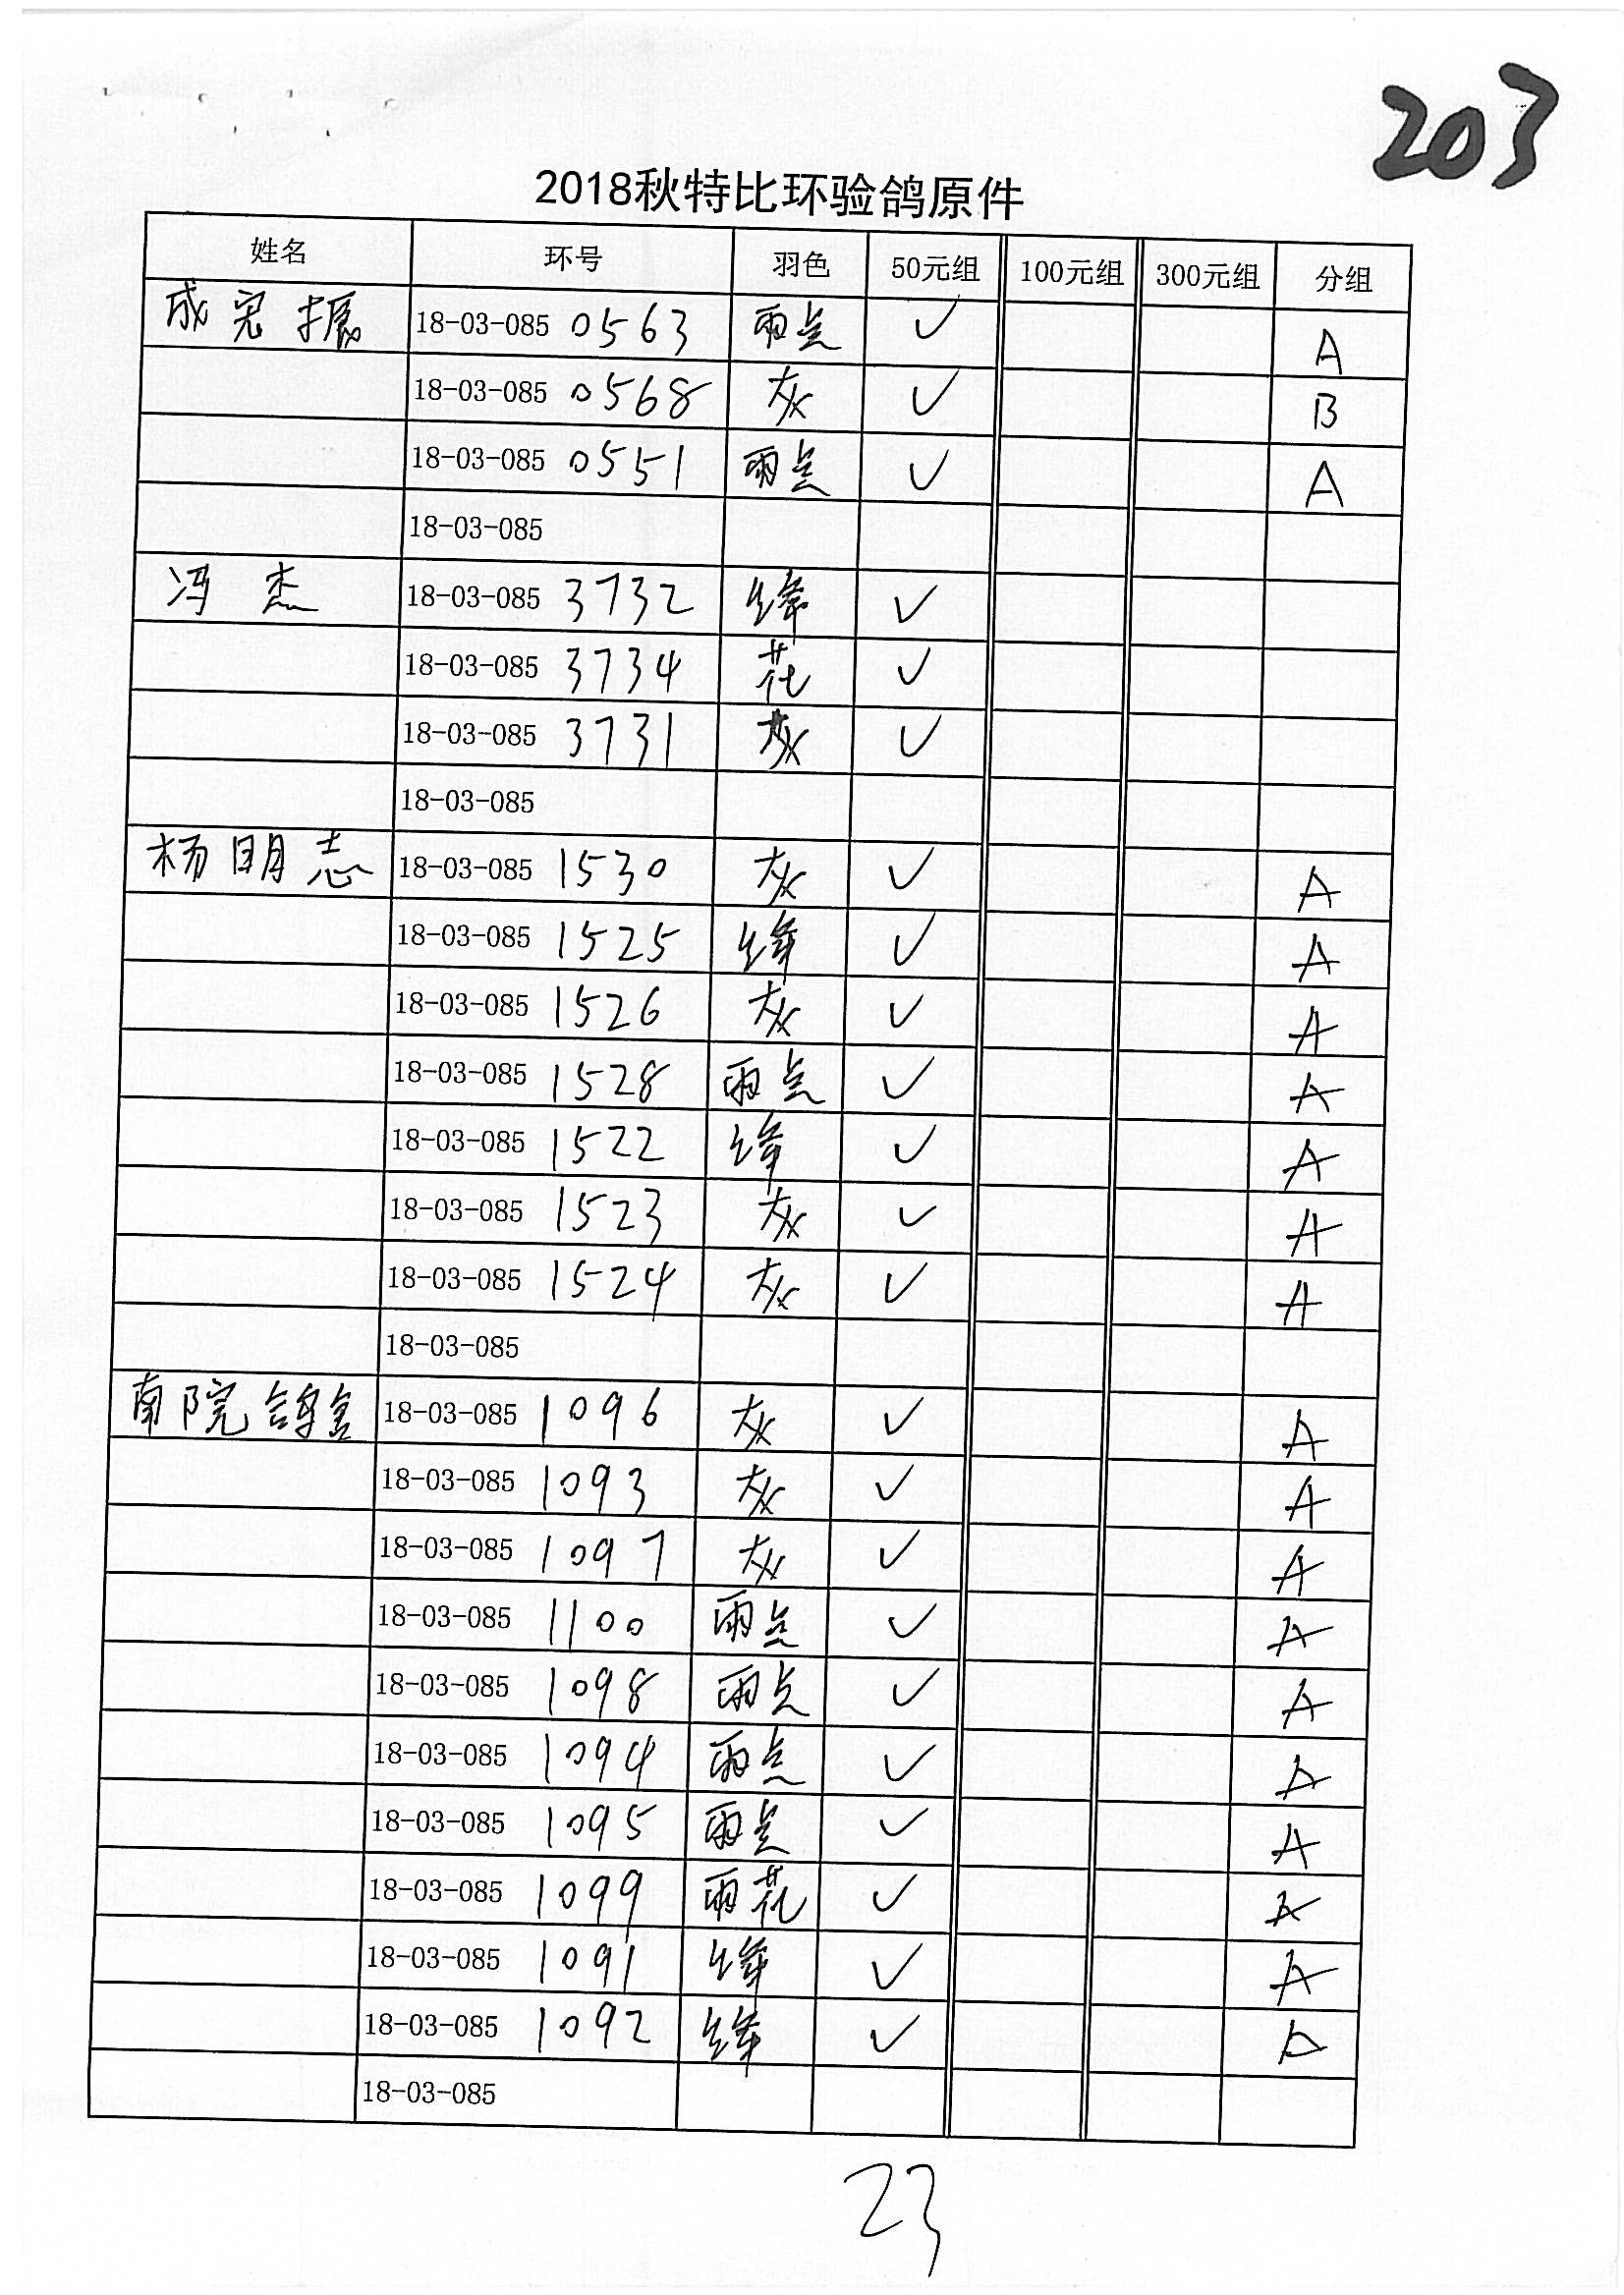 203
2018秋特比环验鸽原件
姓名 环号 羽色 50元组 100元组 300元组 分组
成宪振 18-03-085 0563 雨点 ✓ A
18-03-085 0568 灰 ✓ B
18-03-085 0551 雨点 ✓ A
18-03-085
冯杰 18-03-085 3732 绛 ✓
18-03-085 3734 花 ✓
18-03-085 3731 灰 ✓
18-03-085
杨明志 18-03-085 1530 灰 ✓ A
18-03-085 1525 绛 ✓ A
18-03-085 1526 灰 ✓ A
18-03-085 1528 雨点 ✓ A
18-03-085 1522 绛 ✓ A
18-03-085 1523 灰 ✓ A
18-03-085 1524 灰 ✓ A
18-03-085
南院鸽舍 18-03-085 1096 灰 ✓ A
18-03-085 1093 灰 ✓ A
18-03-085 1097 灰 ✓ A
18-03-085 1100 雨点 ✓ A
18-03-085 1098 雨点 ✓ A
18-03-085 1094 雨点 ✓ A
18-03-085 1095 雨点 ✓ A
18-03-085 1099 雨花 ✓ A
18-03-085 1091 绛 ✓ A
18-03-085 1092 绛 ✓ A
18-03-085
23